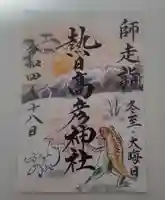 師走詣
冬至・大晦日
熱日高彦神社
令和四年十二月十八日